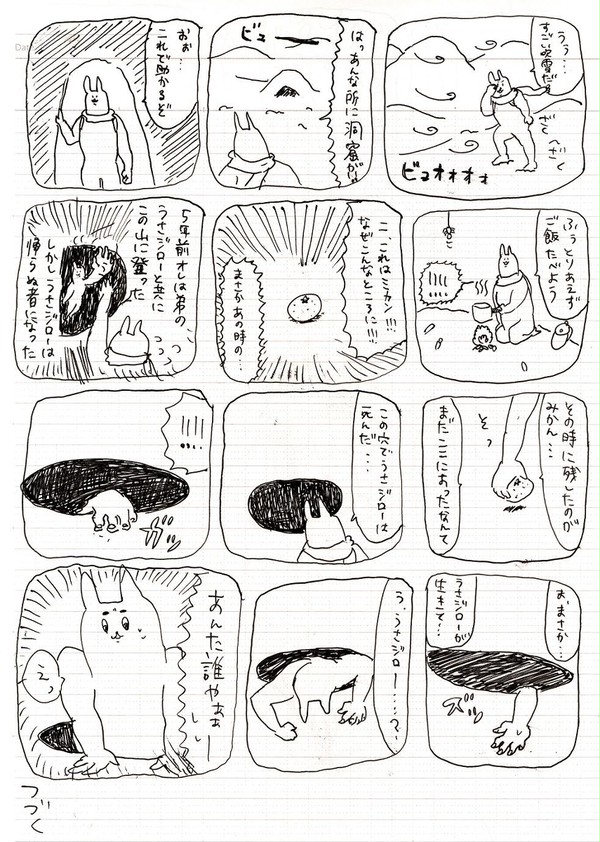 うぅ…
すごい吹雪だぁ
ざく
へ
ざく
ビュオォォォ
はっあんな所に洞窟が!!
ビュー
おぉ…
これで助かるぞ
ふぅとりあえず
ご飯たべよう
!!!!
こ、これはミカン!!!
なぜこんなところに!!!
まさかあの時の…
5年前オレは弟の
うさジローと共に
この山に登った
しかしうさジローは
帰らぬ者になった
その時に残したのが
みかん…
まだここにあったなんて
そっ
この穴でうさジローは
死んだ…
!!!!
ガッ
おまさか…
うさジローが
生きて…
ズッ
う、うさジロー……?
あんた誰やぁぁ
しぃー
えっ
つづく